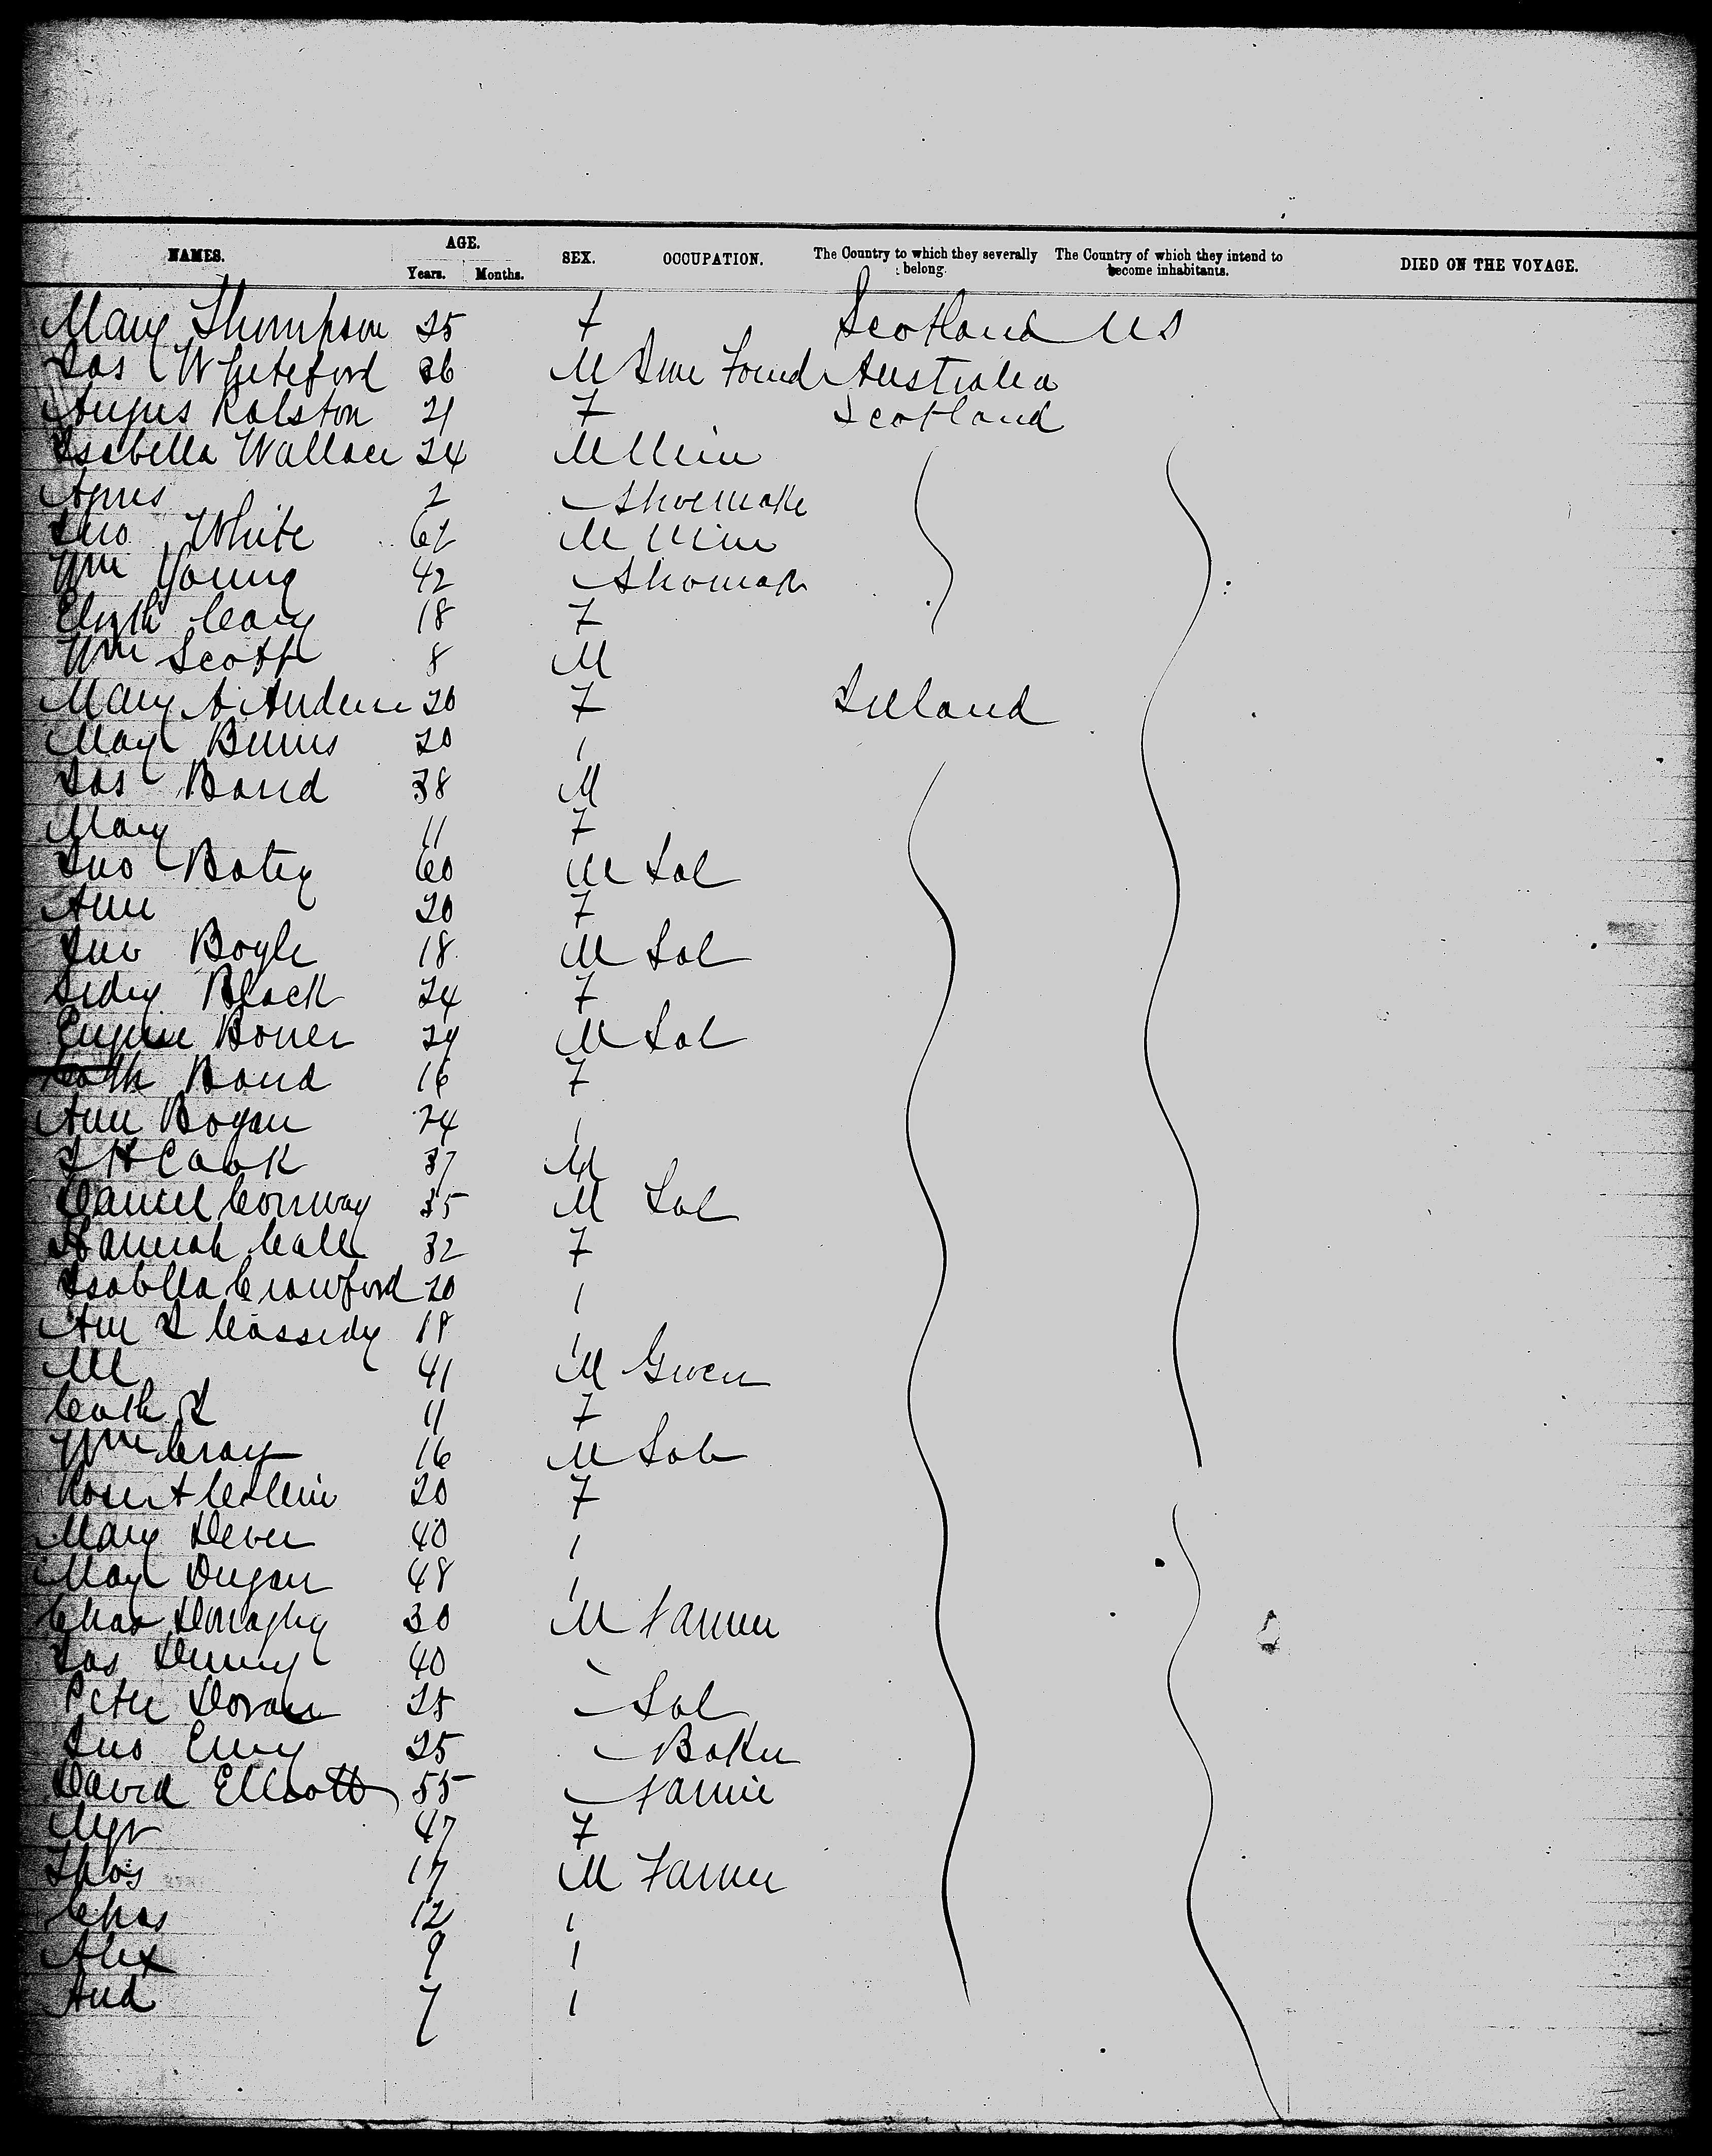 NAMES. AGE. SEX. OCCUPATION. The Country to which they severally belong. The Country of which they intend to become inhabitants. DIED ON THE VOYAGE.
Years. Months.
Mary Thompson 25 F Scotland US
Jas Whiteford 26 M Australia
Angus Ralston 21 F Scotland
Isabella Wallace 24 M
Agnes 2 Shoemake
Jno White 62 M
Wm Young 42 Shomak
Elizth Cary 18 F
Wm Scott 8 M
Mary A Anderson 20 F Ireland
Mary Burns 20 "
Jas Band 38 M
Mary 11 F
Jno Batey 60 M Lab
Ann 20 F
Jno Boyle 18 M Lab
Lidey Black 24 F
Eugene Boner 29 M Lab
Cath Band 16 F
Ann Bogan 24 "
J H Cook 37 M
Daniel Conway 35 M Lab
Hannah Call 32 F
Isabella Crawford 20 "
Ann J Cassidy 18 "
M 41 M Grocer
Cath J 11 F
Wm Cray 16 M Lab
20 F
Mary Dever 40 "
Mary Dugan 48 "
Chas Donaghy 30 M Farmer
Jas Denny 40
Peter Doran 25 Lab
Jno Emy 25 Baker
David Elliott 55 Farmer
Mgr 47 F
Thos 17 M Farmer
Chas 12 "
Alex 9 "
And 7 "